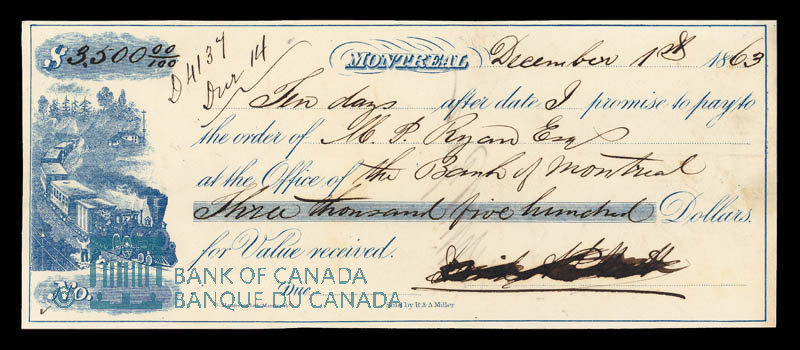 $ 3,500 00/100
D 4137
Due 14
MONTREAL December 1st 1863
Ten days after date I promise to pay to
the order of M. P. Ryan Esq
at the Office of the Bank of Montreal
Three thousand five hundred Dollars.
for Value received.
No. Due
BANK OF CANADA
BANQUE DU CANADA
Sold by R & A Miller